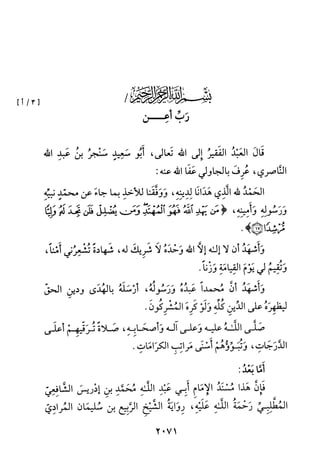 بسم الله الرحمن الرحيم /
[٢/أ]
ربِّ أعِـــن
قَالَ العَبْدُ الفَقيرُ إلى الله تَعالى، أَبُو سَعِيدٍ سَنْجَرُ بنُ عَبدِ الله
النَّاصري، عُرِفَ بالجاولي عَفَا الله عنه:
الحَمْدُ لله الَّذِي هَدَانَا لِدِينِهِ، وَوَفَّقَنا للأخذِ بما جاءَ عن محمّدٍ نبيِّهِ
وَرَسُولِهِ وَأَمِينِهِ، ﴿مَن يَهْدِ ٱللَّهُ فَهُوَ ٱلْمُهْتَدِ وَمَن يُضْلِلْ فَلَن تَجِدَ لَهُ وَلِيًّا
مُّرْشِدًا ۝١٧﴾.
وَأَشهَدُ أن لا إلـٰه إلاَّ الله وَحْدَهُ لاَ شَرِيكَ له، شَهادةً تُشْعِرُني أَمْناً،
وتُقِيمُ لي يَوْمَ القِيامَةِ وَزْناً.
وَأَشْهَدُ أنَّ مُحمداً عَبدُهُ وَرَسُولُهُ، أَرْسَلَهُ بالهُدَى ودينِ الحقّ
ليظهِرَهُ على الدِّينِ كُلِّهِ وَلَوْ كَرِهَ المُشْرِكُونَ.
صَلَّـى اللَّـهُ عليـه وَعلـى آلـه وَأصحَـابِـهِ، صَـلاةً تُـرَقِّيهِـمْ أعلَـى
الدَّرَجَاتِ، وَتُبَـوِّؤُهُمْ أَسْنَى مَراتِبِ الكرَامَاتِ.
أمَّا بَعْدُ:
فَإِنَّ هَذَا مُسْنَدُ الإمَامِ أبِـي عَبْدِ اللَّـهِ مُحَمَّدِ بنِ إدْريسَ الشَّافِعِيّ
المُطَّلِبِـيِّ رَحْمَةُ اللَّـهِ عَلَيْهِ، رِوَايَةُ الشَّيْخِ الرَّبيعِ بن سُليمَان المُرادِيّ
٢٠٧١